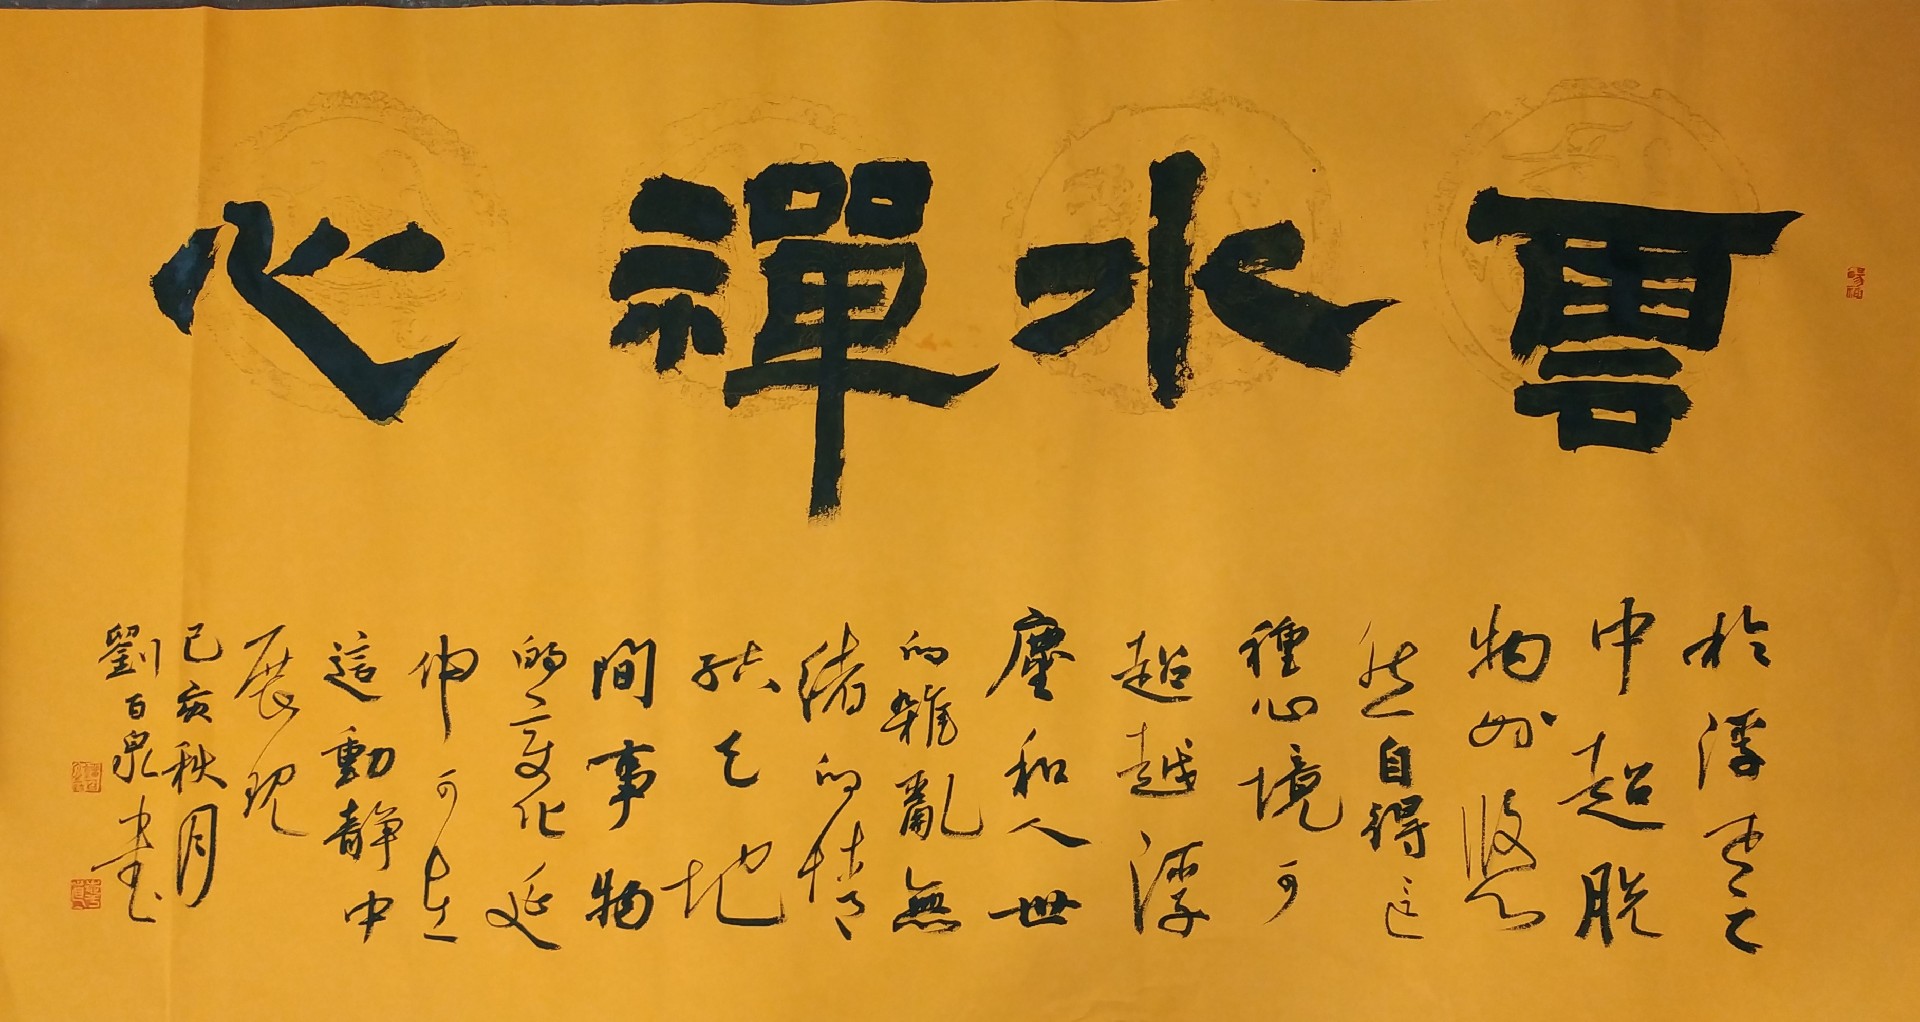 雲水禪心
於浮雲之
中超脫
物外悠
然自得這
種心境可
超越浮
塵和人世
的雜亂無
緒的情
結天地
間事物
的變化延
伸可在
這動靜中
展現
己亥秋月
劉百泉書